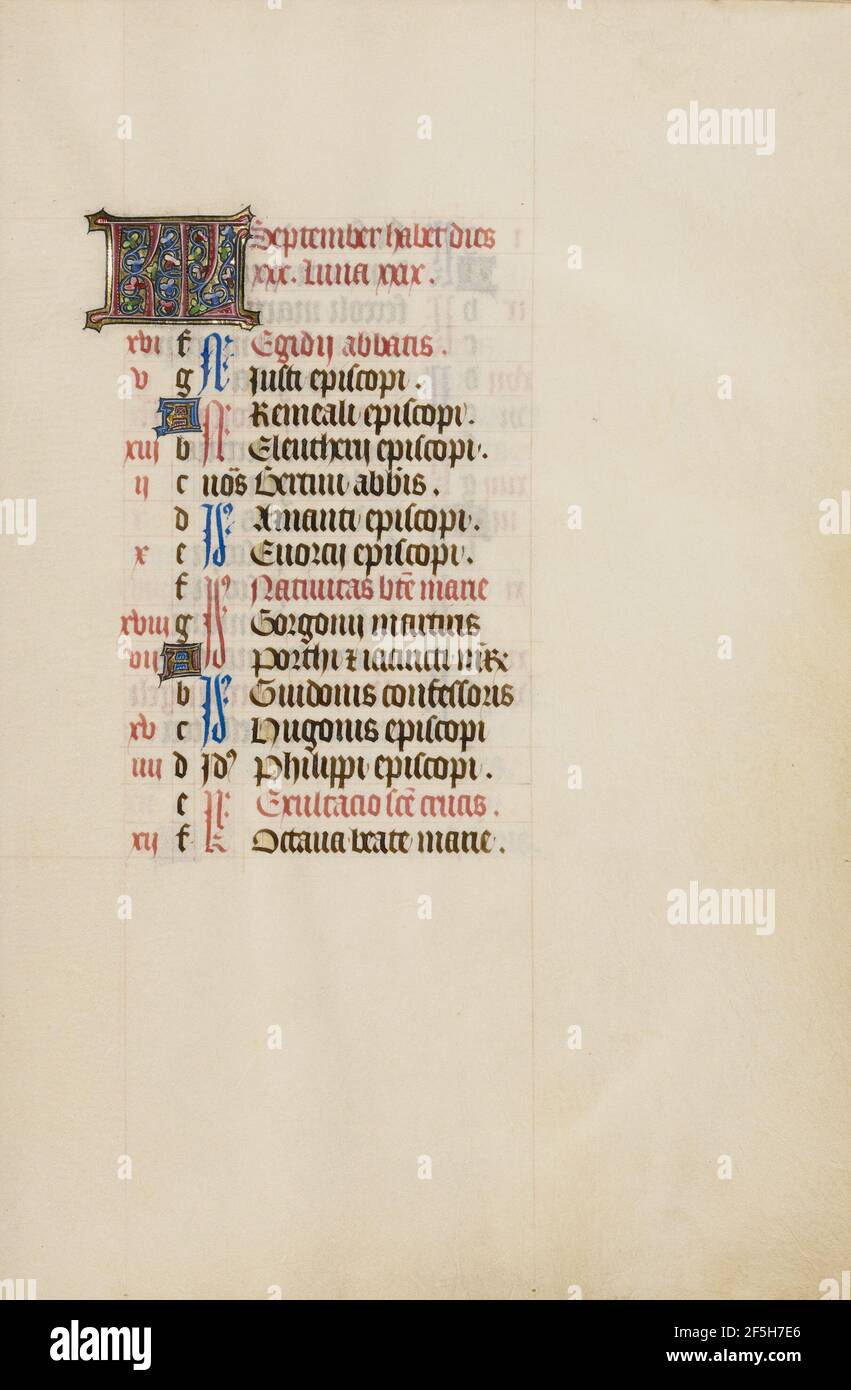 KL September habet dies
xxx. Luna xxix.
xvi f N: Egidij abbatis.
v g N: Justi episcopi.
A N: Remcali episcopi.
xiij b N Eleutherij episcopi.
ij c nos Bertini abbis.
d Id: Amanti episcopi.
x e Id Euorcij episcopi.
f Id Natiuitas bte marie
xviij g Id Gorgonij martiris
vij A Id Porthi & iacincti mr
b Id: Guidonis confessoris
xv c Id Hugonis episcopi
iiij d Id Philippi episcopi.
e N: Exultacio scē crucis.
xij f K Octaua beate marie.
alamy
a
Image ID: 2F5H7E6
www.alamy.com